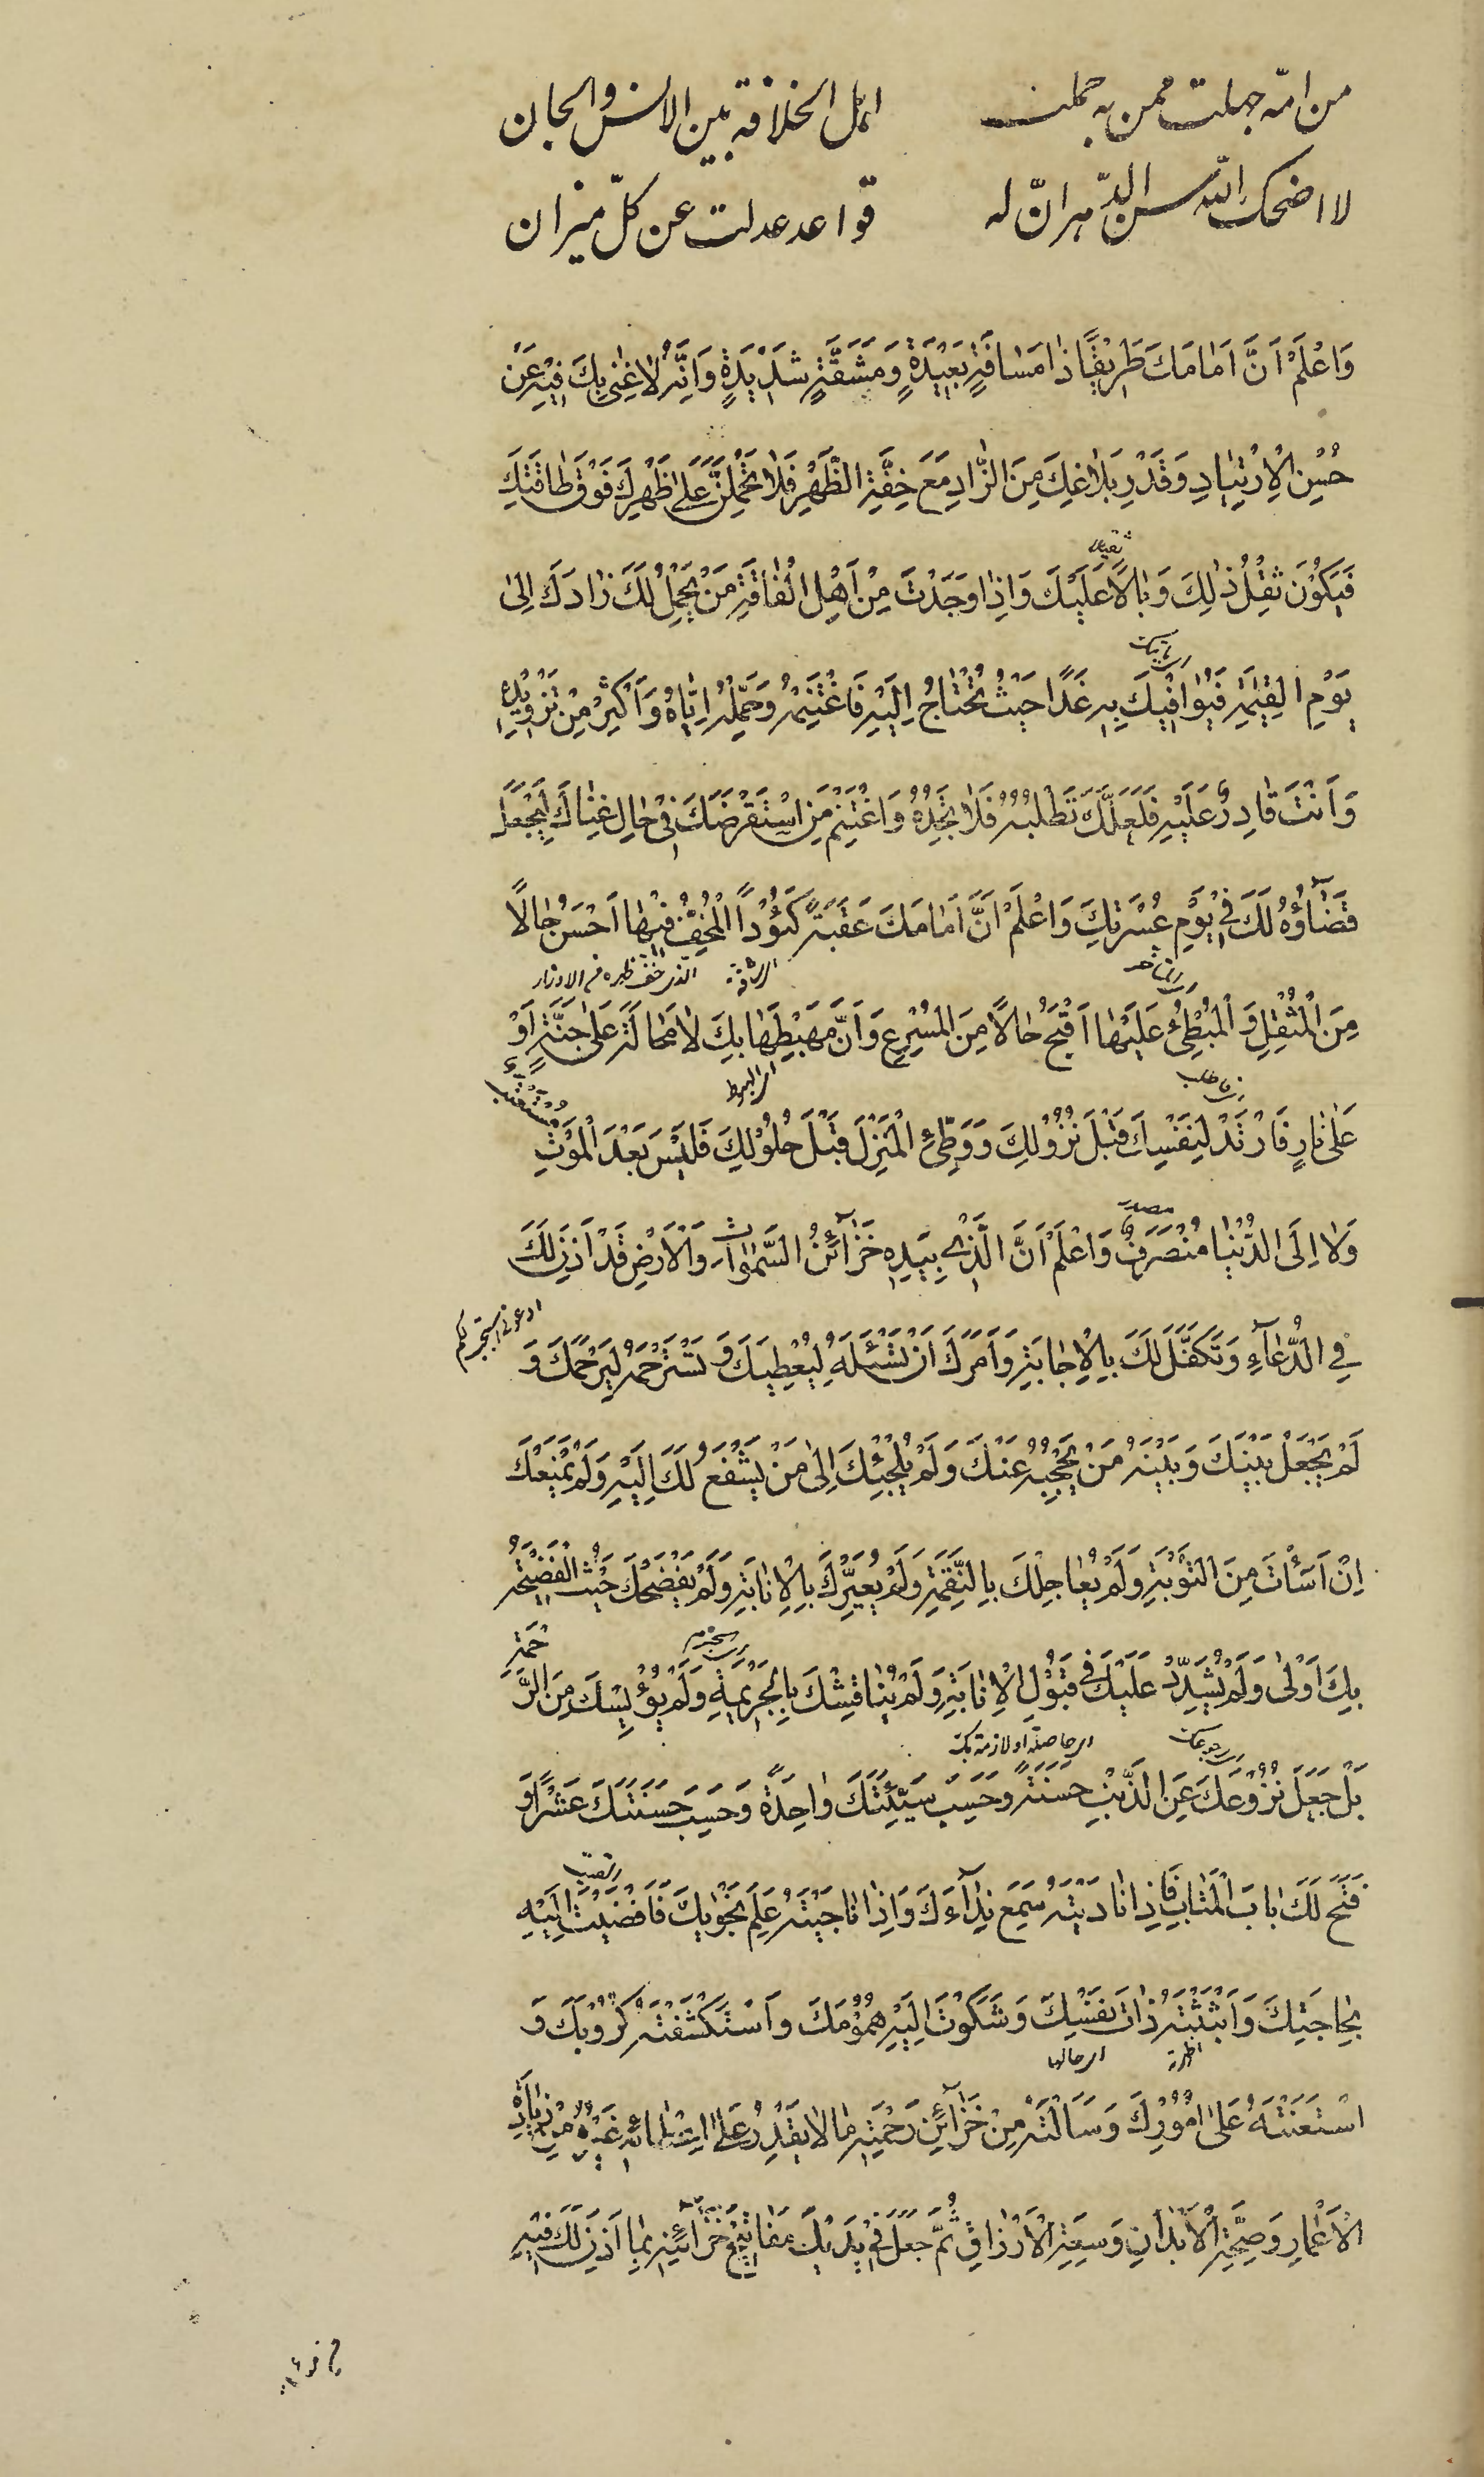 من امّة جهلت ممن به حملت اهل الخلافة بين الانس والجان
لا اضحك الله سن الدّهر انّ له قواعد عدلت عن كلّ ميزان
وَاعْلَمْ اَنَّ اَمَامَكَ طَرِيْقًا ذَا مَسَافَةٍ بَعِيْدَةٍ وَمَشَقَّةٍ شَدِيْدَةٍ وَاَنَّهُ لَا غِنٰى بِكَ فِيْهِ عَنْ
حُسْنِ الْاِرْتِيَادِ وَقَدْرِ بَلَاغِكَ مِنَ الزَّادِ مَعَ خِفَّةِ الظَّهْرِ فَلَا تَحْمِلَنَّ عَلٰى ظَهْرِكَ فَوْقَ طَاقَتِكَ
ثقيلا
فَيَكُوْنَ ثِقْلُ ذٰلِكَ وَبَالًا عَلَيْكَ وَاِذَا وَجَدْتَ مِنْ اَهْلِ الْفَاقَةِ مَنْ يَحْمِلُ لَكَ زَادَكَ اِلٰى
يَوْمِ الْقِيٰمَةِ فَيُوَافِيْكَ بِهِ غَدًا حَيْثُ تَحْتَاجُ اِلَيْهِ فَاغْتَنِمْهُ وَحَمِّلْهُ اِيَّاهُ وَاَكْثِرْ مِنْ تَزْوِيْدِهِ
وَاَنْتَ قَادِرٌ عَلَيْهِ فَلَعَلَّكَ تَطْلُبُهُ فَلَا تَجِدُهُ وَاغْتَنِمْ مَنِ اسْتَقْرَضَكَ فِيْ حَالِ غِنَاكَ لِيَجْعَلَ
قَضَآؤُهُ لَكَ فِيْ يَوْمِ عُسْرَتِكَ وَاعْلَمْ اَنَّ اَمَامَكَ عَقَبَةً كَئُوْدًا الْمُخِفُّ فِيْهَا اَحْسَنُ حَالًا
الشاقة الذى خف ظهره من الاوزار
مِنَ الْمُثْقِلِ وَالْمُبْطِئُ عَلَيْهَا اَقْبَحُ حَالًا مِنَ الْمُسْرِعِ وَاَنَّ مَهْبِطَهَا بِكَ لَا مَحَالَةَ عَلٰى جَنَّةٍ اَوْ
اى الهبوط
عَلٰى نَارٍ فَارْتَدْ لِنَفْسِكَ قَبْلَ نُزُوْلِكَ وَوَطِّئِ الْمَنْزِلَ قَبْلَ حُلُوْلِكَ فَلَيْسَ بَعْدَ الْمَوْتِ مُسْتَعْتَبٌ
مصدر
وَلَا اِلَى الدُّنْيَا مُنْصَرَفٌ وَاعْلَمْ اَنَّ الَّذِيْ بِيَدِهِ خَزَآئِنُ السَّمٰوَاتِ وَالْاَرْضِ قَدْ اَذِنَ لَكَ
ادعونى استجب لكم
فِي الدُّعَآءِ وَتَكَفَّلَ لَكَ بِالْاِجَابَةِ وَاَمَرَكَ اَنْ تَسْئَلَهُ لِيُعْطِيَكَ وَ تَسْتَرْحِمَهُ لِيَرْحَمَكَ وَ
لَمْ يَجْعَلْ بَيْنَكَ وَبَيْنَهُ مَنْ يَحْجُبُهُ عَنْكَ وَلَمْ يُلْجِئْكَ اِلٰى مَنْ يَشْفَعُ لَكَ اِلَيْهِ وَلَمْ يَمْنَعْكَ
اِنْ اَسَأْتَ مِنَ التَّوْبَةِ وَلَمْ يُعَاجِلْكَ بِالنِّقْمَةِ وَلَمْ يُعَيِّرْكَ بِالْاِنَابَةِ وَلَمْ يَفْضَحْكَ حَيْثُ الْفَضِيْحَةُ
بِكَ اَوْلٰى وَلَمْ يُشَدِّدْ عَلَيْكَ فِيْ قَبُوْلِ الْاِنَابَةِ وَلَمْ يُنَاقِشْكَ بِالْجَرِيْمَةِ وَلَمْ يُؤْيِسْكَ مِنَ الرَّحْمَةِ
بَلْ جَعَلَ نُزُوْعَكَ عَنِ الذَّنْبِ حَسَنَةً وَحَسَبَ سَيِّئَتَكَ وَاحِدَةً وَحَسَبَ حَسَنَتَكَ عَشْرًا وَ
فَتَحَ لَكَ بَابَ الْمَتَابِ فَاِذَا نَادَيْتَهُ سَمِعَ نِدَآءَكَ وَاِذَا نَاجَيْتَهُ عَلِمَ نَجْوٰيكَ فَاَفْضَيْتَ اِلَيْهِ
بِحَاجَتِكَ وَاَبْثَثْتَهُ ذَاتَ نَفْسِكَ وَشَكَوْتَ اِلَيْهِ هُمُوْمَكَ وَاسْتَكْشَفْتَهُ كُرُوْبَكَ وَ
اى حالها
اسْتَعَنْتَهُ عَلٰى اُمُوْرِكَ وَسَاَلْتَهُ مِنْ خَزَآئِنِ رَحْمَتِهِ مَا لَا يَقْدِرُ عَلٰى اِعْطَائِهِ غَيْرُهُ مِنْ زِيَادَةِ
الْاَعْمَارِ وَصِحَّةِ الْاَبْدَانِ وَسَعَةِ الْاَرْزَاقِ ثُمَّ جَعَلَ فِيْ يَدَيْكَ مَفَاتِيْحَ خَزَآئِنِهِ بِمَا اَذِنَ لَكَ فِيْهِ